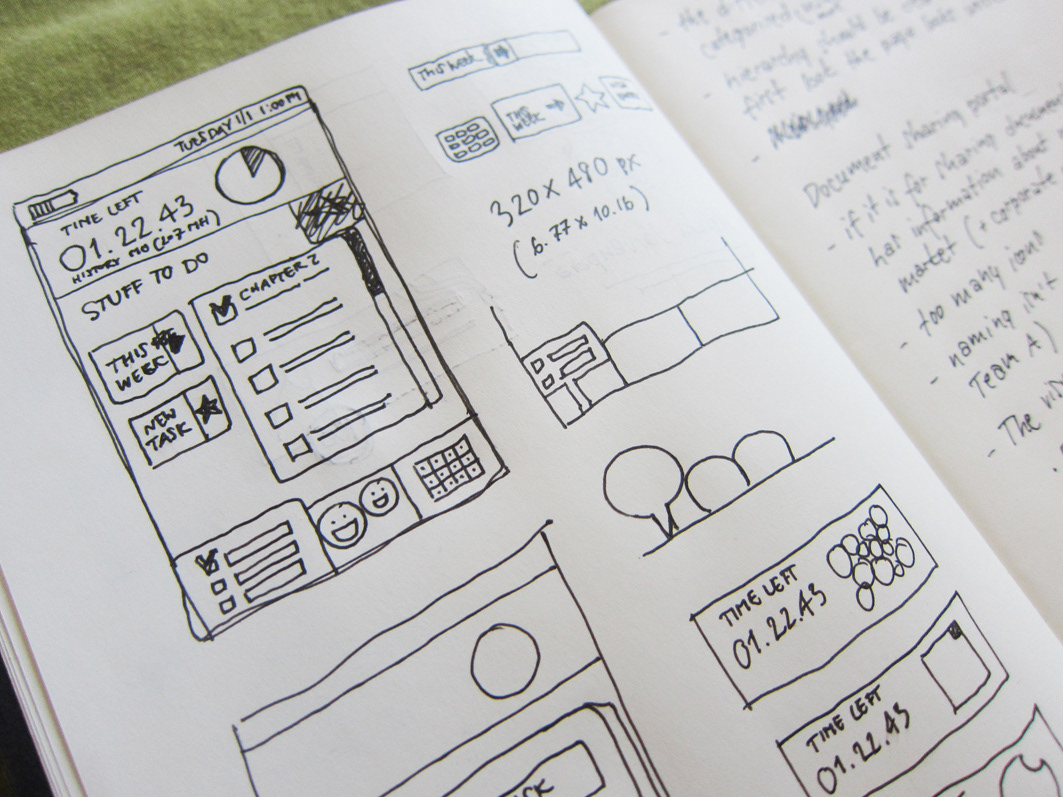 TUESDAY 1/1 1:00 PM
TIME LEFT
01.22.43
HISTORY
STUFF TO DO
THIS
WEEK
NEW
TASK
CHAPTER 2
This week
THIS
WEEK
320 X 490 px
(6.77 x 10.16)
TIME LEFT
01.22.43
TIME LEFT
01.22.43
SK
categorized
hierarchy should be
first look the page looks
Document sharing portal
- if it is for sharing documents
has information about
market (+ corporate
- too many icons
- naming isn't
Team A)
- The